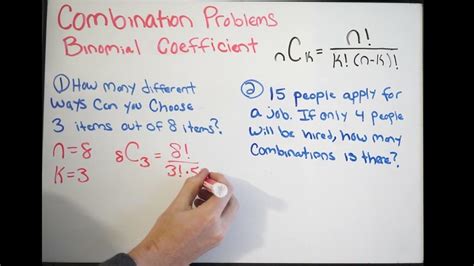 Combination Problems
Binomial Coefficient
nCk = n! / k!(n-k)!
① How many different
ways can you choose
3 items out of 8 items?
n=8
k=3
8C3 = 8! / 3!·5
② 15 people apply for
a job. If only 4 people
will be hired, how many
combinations is there?